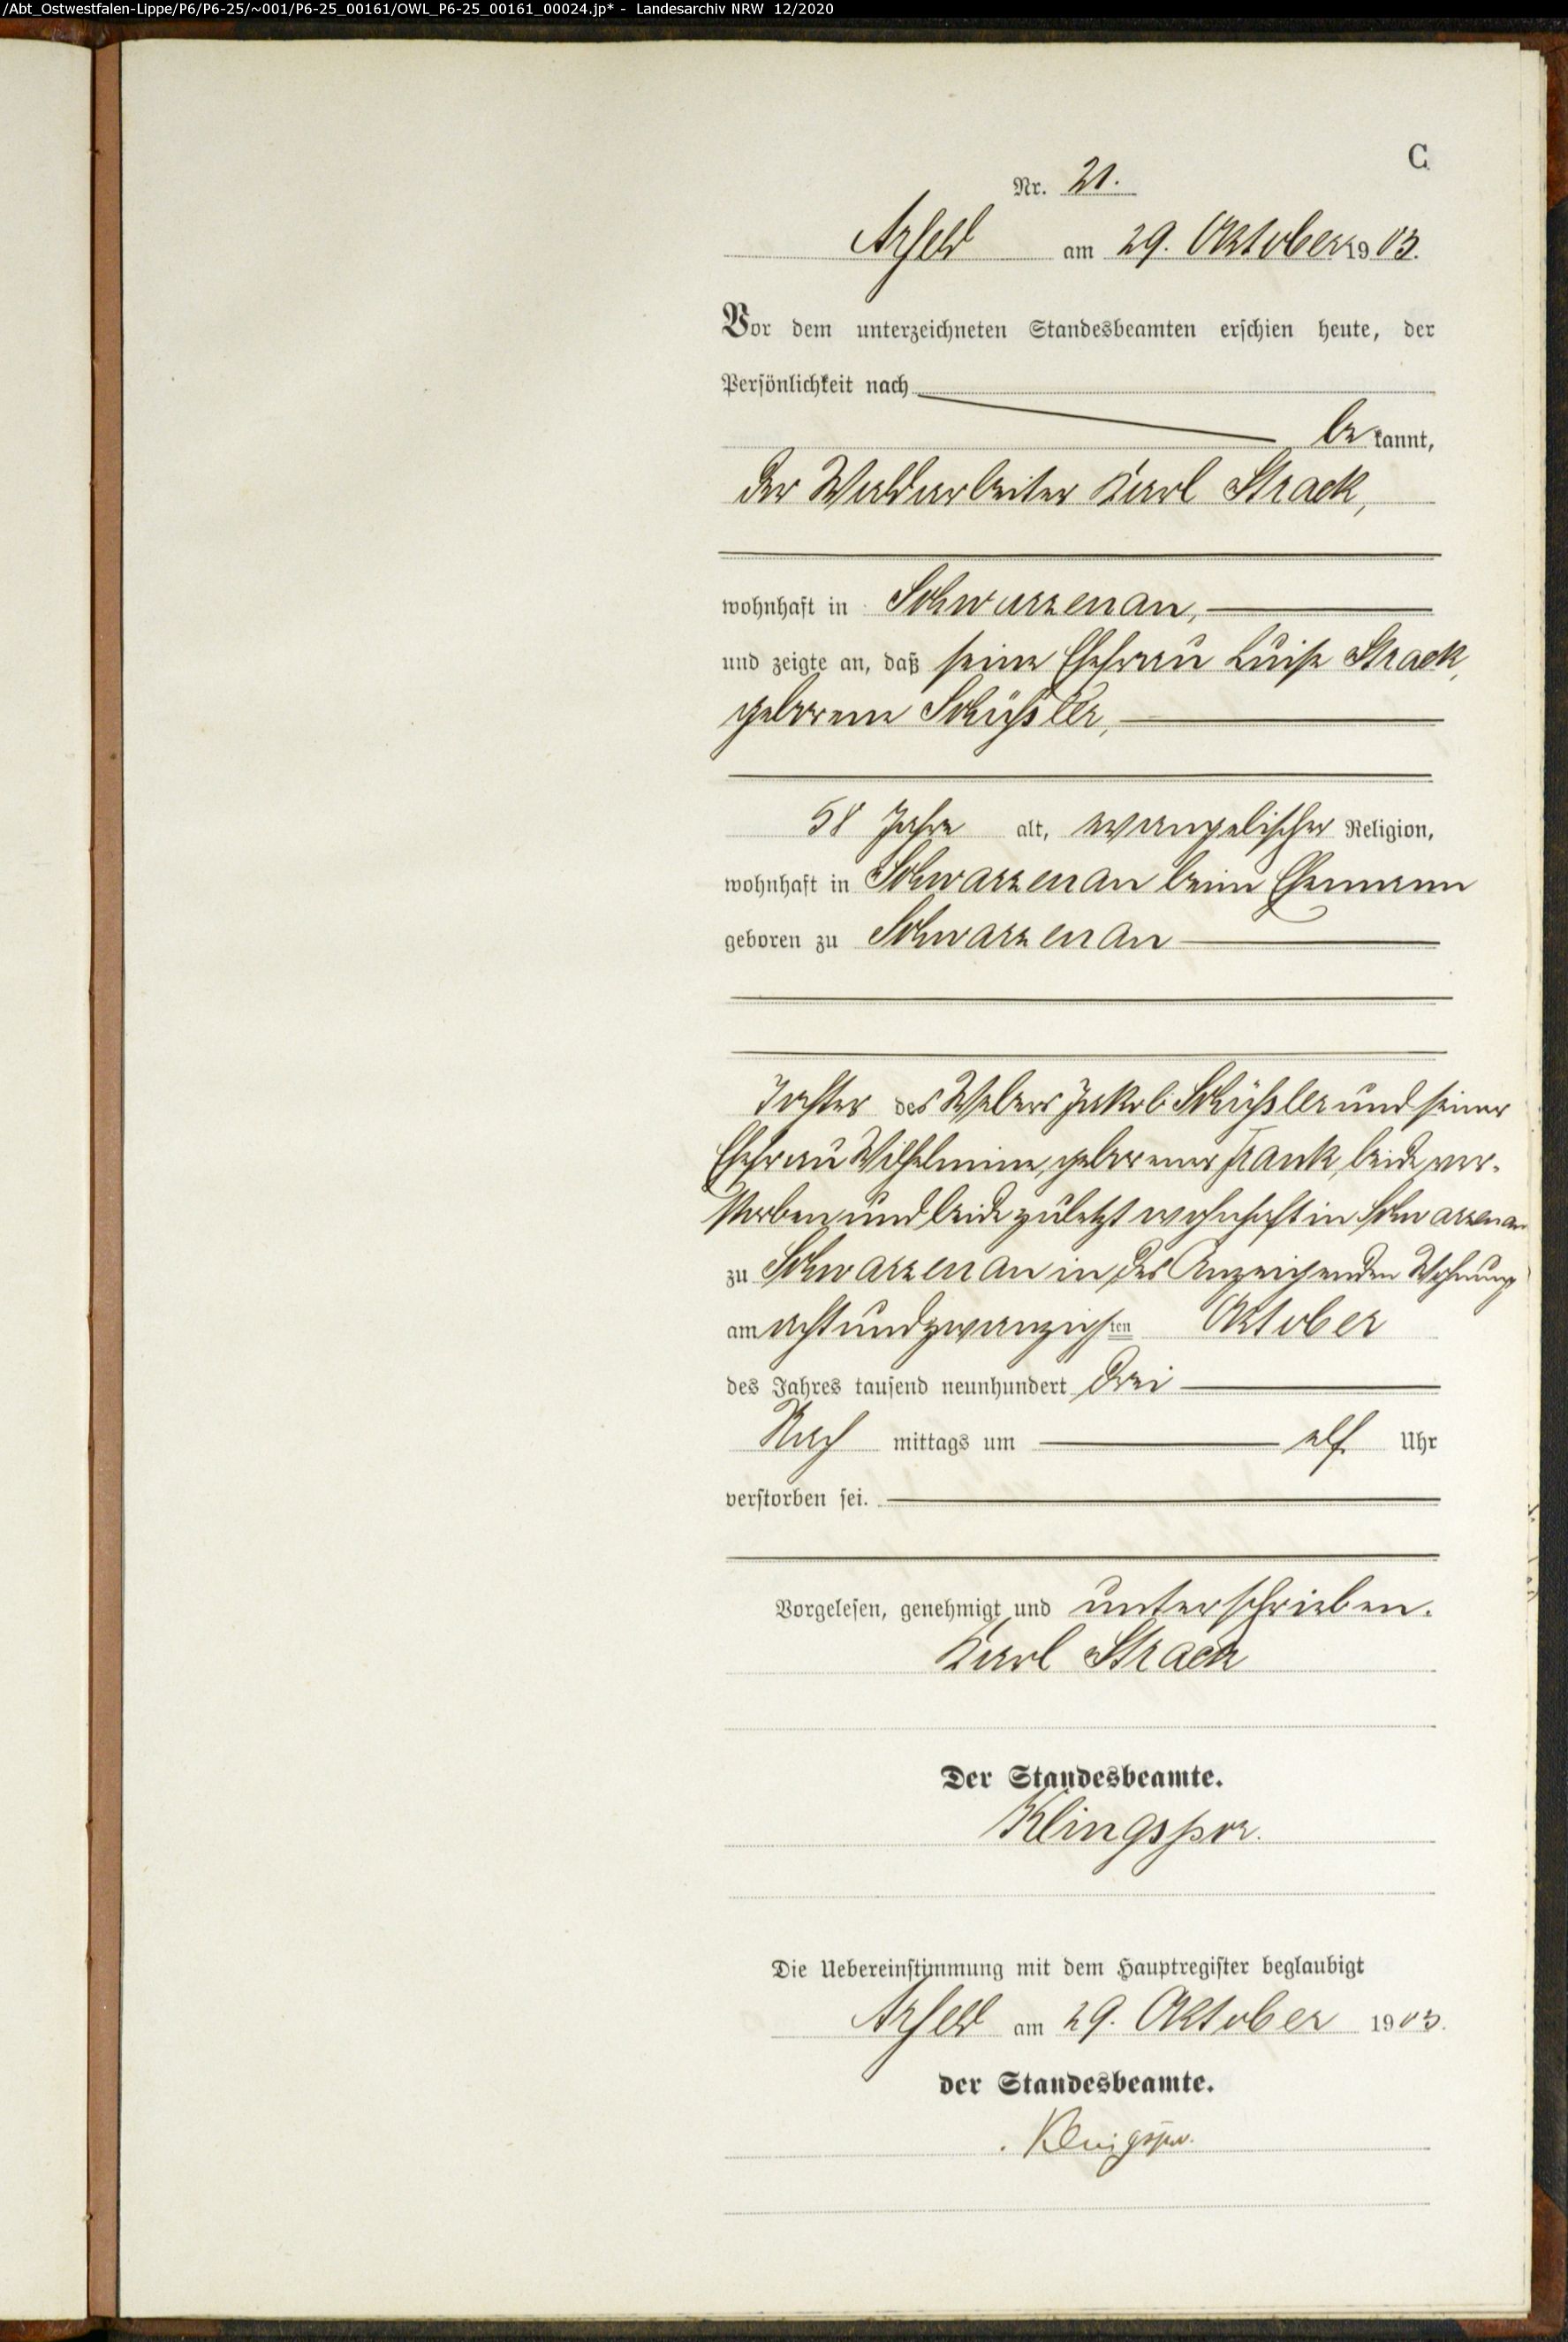 /Abt_Ostwestfalen-Lippe/P6/P6-25/~001/P6-25_00161/OWL_P6-25_00161_00024.jp* - Landesarchiv NRW 12/2020
C
Nr. 21.
Arfeld am 29. Oktober 1903.
Vor dem unterzeichneten Standesbeamten erschien heute, der
Persönlichkeit nach
bekannt,
der Waldarbeiter Karl Strack,
wohnhaft in Schwarzenau,
und zeigte an, daß seine Ehefrau Luise Strack,
geborene Schüßler,
58 Jahre alt, evangelischer Religion,
wohnhaft in Schwarzenau beim Ehemann
geboren zu Schwarzenau
Tochter des Webers Jakob Schüßler und seiner
Ehefrau Wilhelmine, geborener Frank, beide ver-
storben und beide zuletzt wohnhaft in Schwarzenau
zu Schwarzenau in des Anzeigenden Wohnung
am achtundzwanzigsten Oktober
des Jahres tausend neunhundert drei
Nach mittags um elf Uhr
verstorben sei.
Vorgelesen, genehmigt und unterschrieben.
Karl Strack
Der Standesbeamte.
Klingspor.
Die Uebereinstimmung mit dem Hauptregister beglaubigt
Arfeld am 29. Oktober 1903.
der Standesbeamte.
Klingspor.